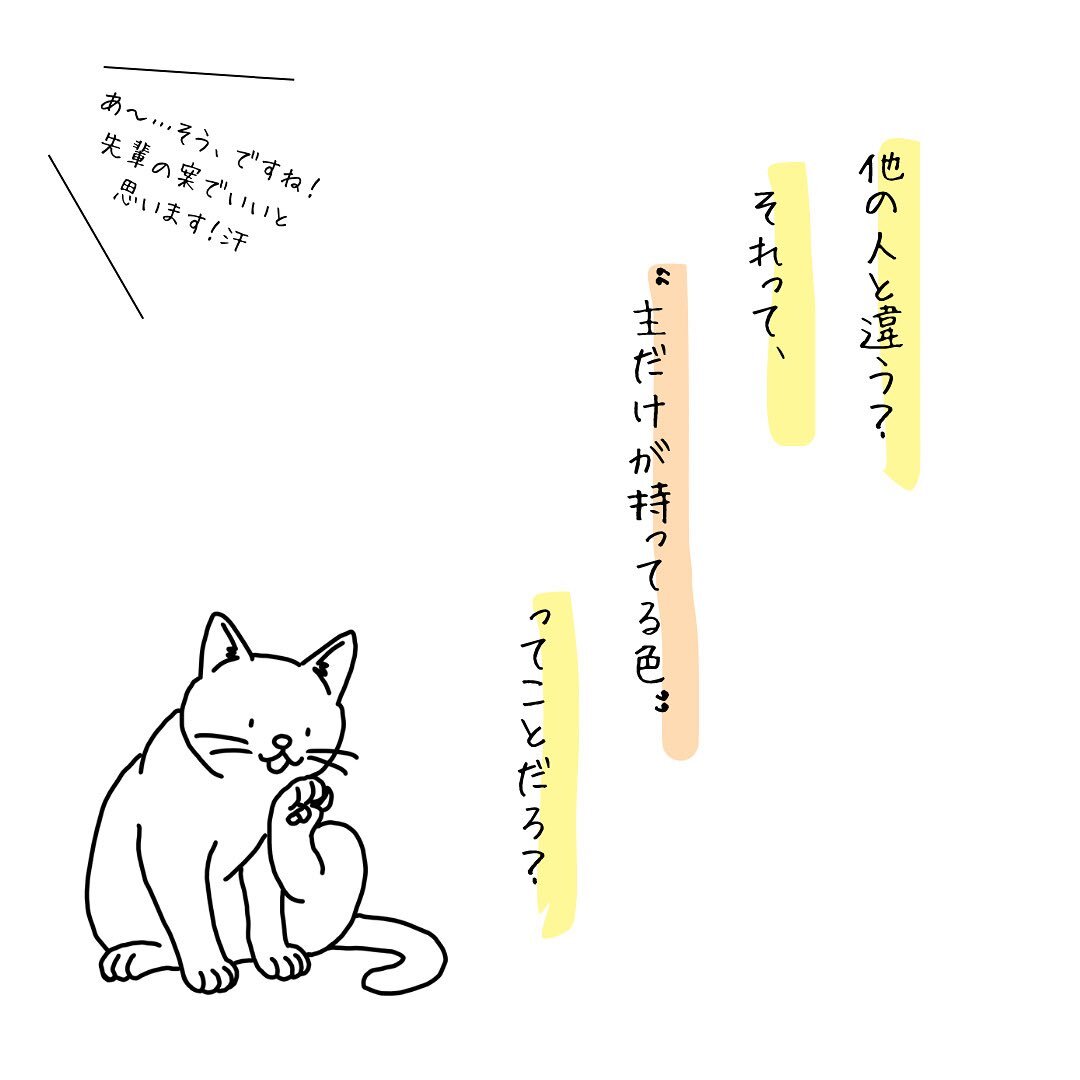 あ〜…そう、ですね!
先輩の案でいいと
思います!汗
他の人と違う?
それって、
“主だけが持ってる色”
ってことだろ?